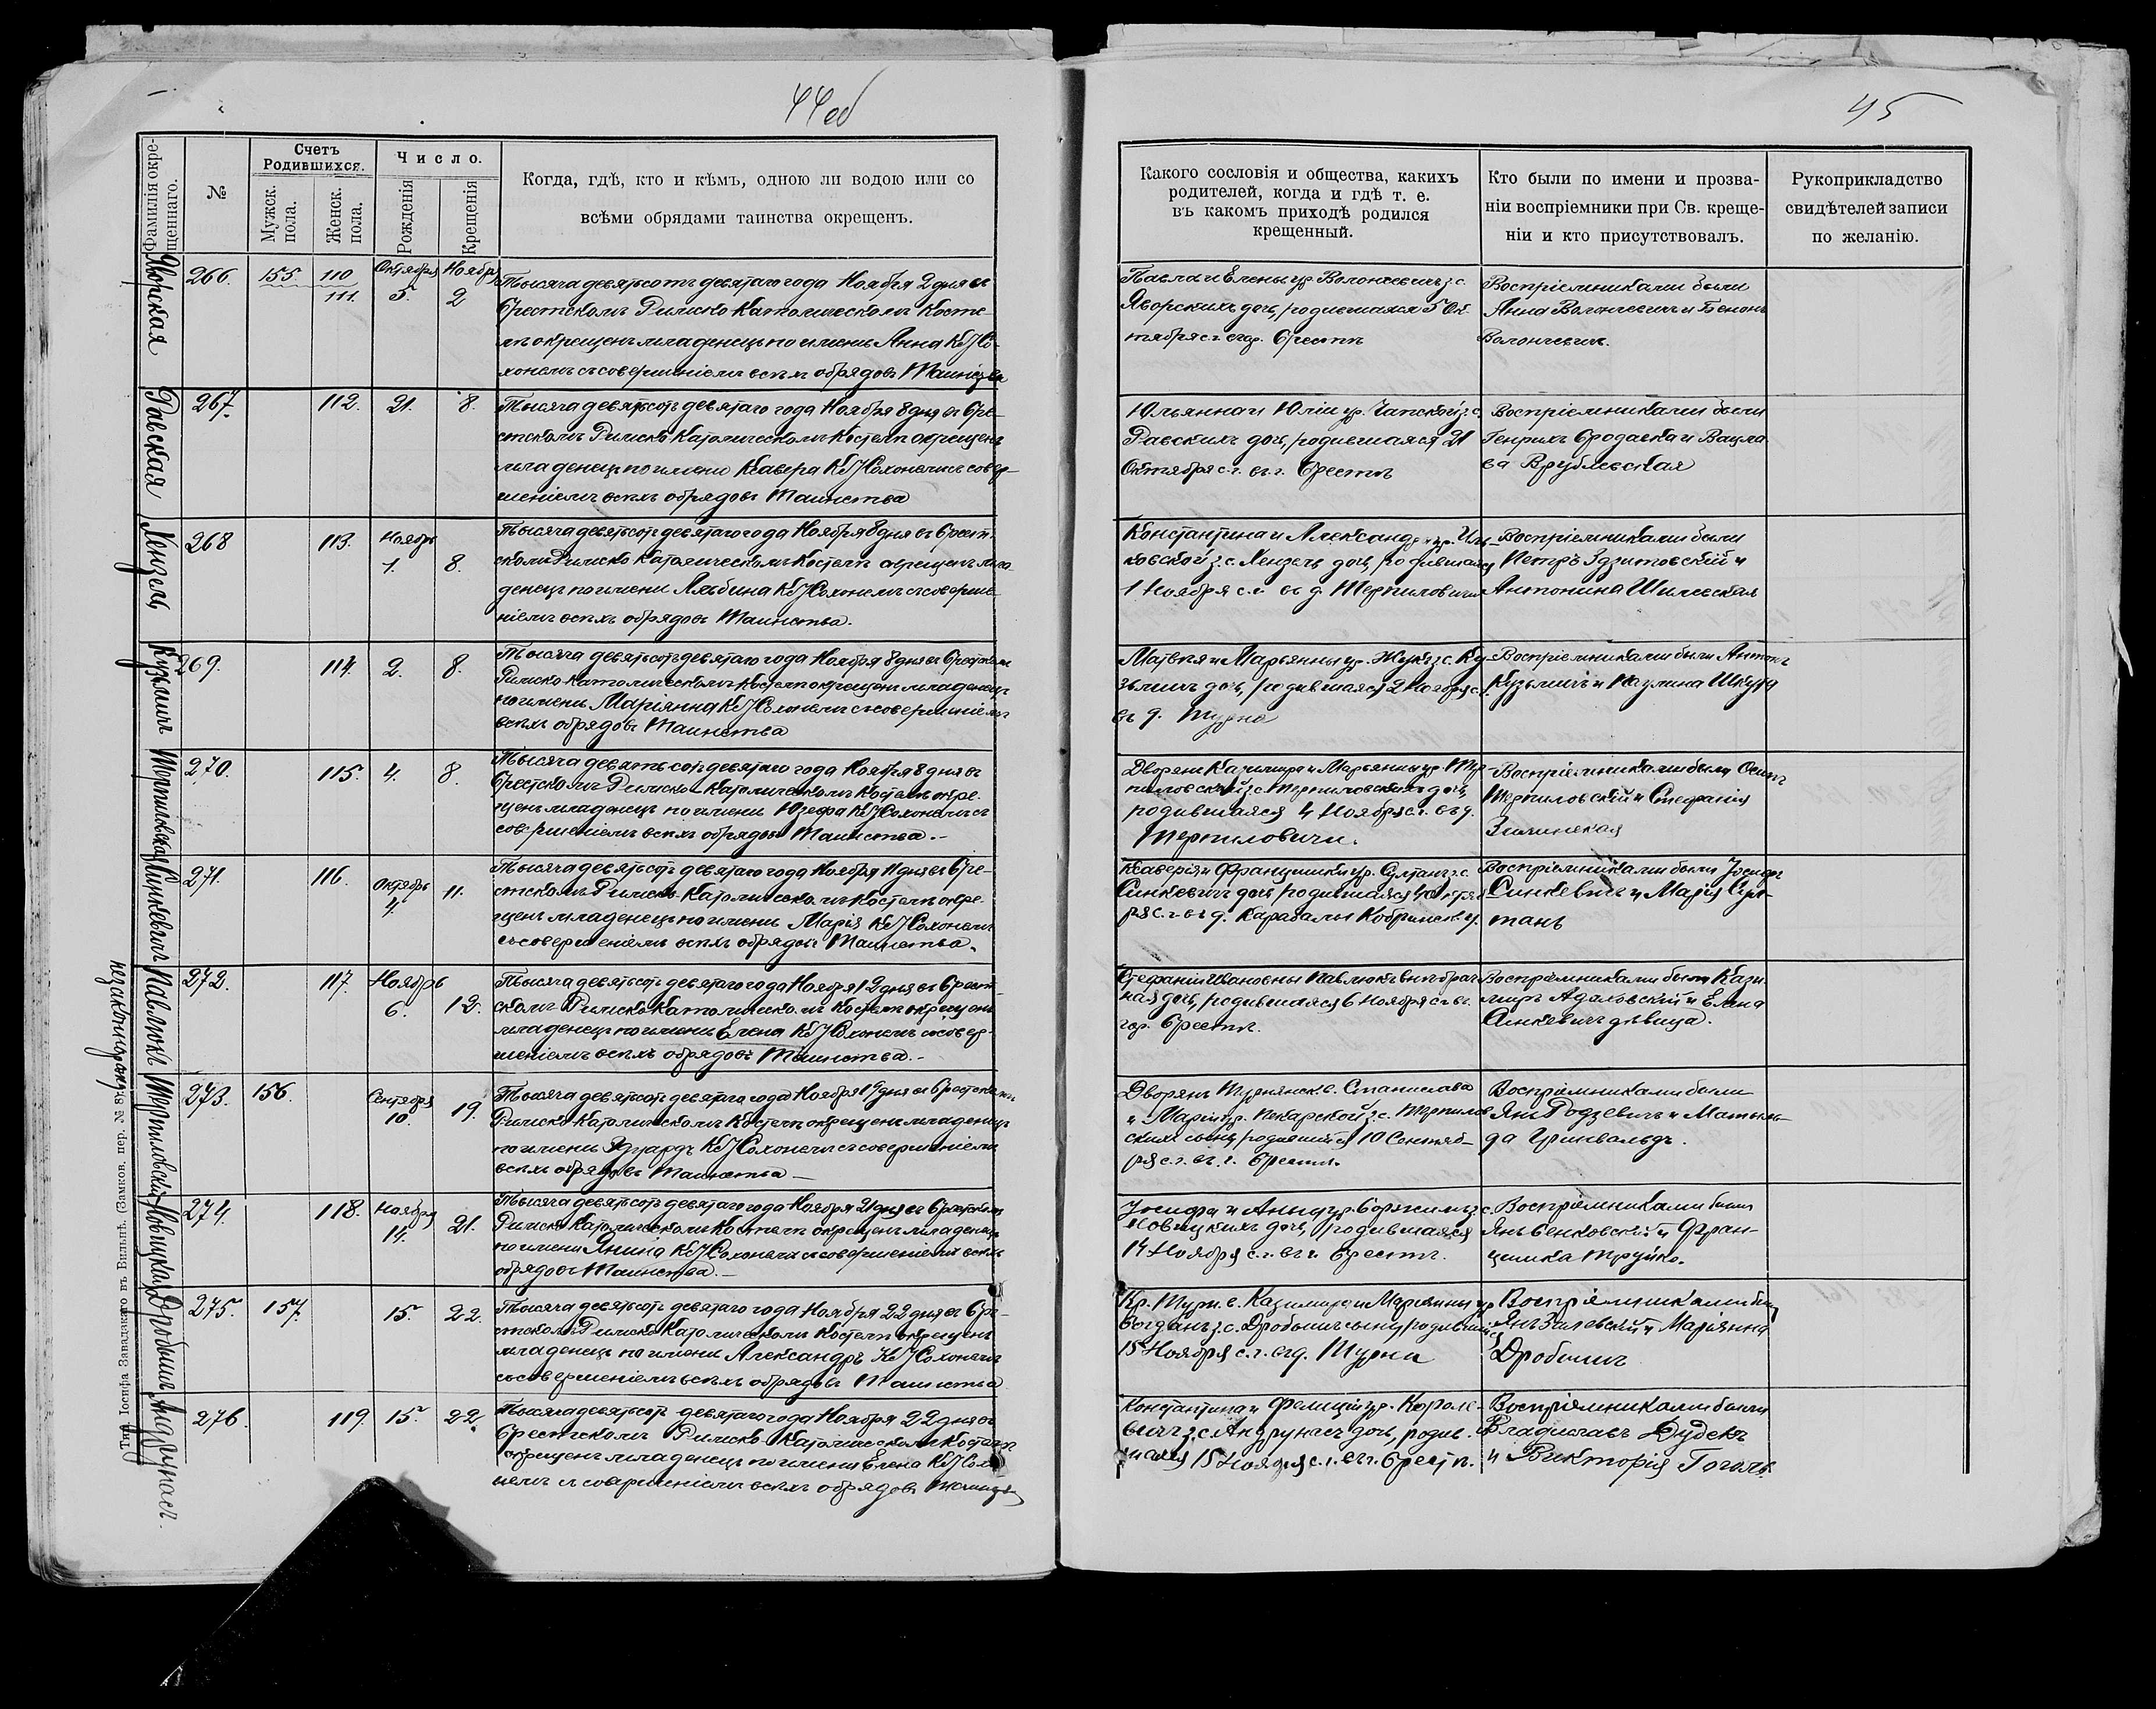 44об
Фамилія окре-
щеннаго.
№
Счетъ
Родившихся.
Мужск.
пола.
Женск.
пола.
Число.
Рожденія
Крещенія
Когда, гдѣ, кто и кѣмъ, одною ли водою или со
всѣми обрядами таинства окрещенъ.
Яворская
266. 155. 110 Октября Ноября
111. 5. 2
Тысяча девятьсотъ девятаго года Ноября 2 дня въ
Брестскомъ Римско Католическомъ Косте-
лѣ окрещенъ младенецъ по имени Анна Кс. І Со-
хонемъ съ совершеніемъ всѣхъ обрядовъ Таинства
Равская
267. 112. 21. 8.
Тысяча девятьсотъ девятаго года Ноября 8 дня въ Бре-
стскомъ Римско Католическомъ Костелѣ окрещенъ
младенецъ по имени Ксавера Кс. І Сохонемъ съ совер-
шеніемъ всѣхъ обрядовъ Таинства
Хензель
268 113. Ноября
1. 8.
Тысяча девятьсотъ девятаго года Ноября 8 дня въ Брест-
скомъ Римско Католическомъ Костелѣ окрещенъ мла-
денецъ по имени Альбина Кс. І Сохонемъ съ соверше-
ніемъ всѣхъ обрядовъ Таинства.
Кузьмичъ
269. 114. 2. 8.
Тысяча девятьсотъ девятаго года Ноября 8 дня въ Брестскомъ
Римско Католическомъ Костелѣ окрещенъ младенецъ
по имени Маріянна Кс. І Сохонемъ съ совершеніемъ
всѣхъ обрядовъ Таинства
Терпиловская
270. 115. 4. 8.
Тысяча девятьсотъ девятаго года Ноября 8 дня въ
Брестскомъ Римско-Католическомъ Костелѣ окре-
щенъ младенецъ по имени Юзефа Кс. І Сохонемъ съ
совершеніемъ всѣхъ обрядовъ Таинства.-
Синкевичъ
271. 116. Октября 11.
4.
Тысяча девятьсотъ девятаго года Ноября 11 дня въ Бре-
стскомъ Римско-Католическомъ Костелѣ окре-
щенъ младенецъ по имени Марія Кс. І Сохонемъ
съ совершеніемъ всѣхъ обрядовъ Таинства.
Павлюкъ
незаконнорожд
272. 117. Ноябрь
6. 12.
Тысяча девятьсотъ девятаго года Ноября 12 дня въ Брест-
скомъ Римско Католическомъ Костелѣ окрещенъ
младенецъ по имени Елена Кс. І Сохонемъ съ совер-
шеніемъ всѣхъ обрядовъ Таинства.-
Терпиловскій
273. 156. Сентября
10. 19.
Тысяча девятьсотъ девятаго года Ноября 19 дня въ Брестскомъ
Римско Католическомъ Костелѣ окрещенъ младенецъ
по имени Эдуардъ Кс. І Сохонемъ съ совершеніемъ
всѣхъ обрядовъ Таинства-
Новицкая
274. 118. Ноября
14. 21.
Тысяча девятьсотъ девятаго года Ноября 21 дня въ Брестскомъ
Римско Католическомъ Костелѣ окрещенъ младенецъ
по имени Янина Кс. І Сохонемъ съ совершеніемъ всѣхъ
обрядовъ Таинства.-
Дробышъ
275. 157. 15. 22.
Тысяча девятьсотъ девятаго года Ноября 22 дня въ Бре-
стскомъ Римско Католическомъ Костелѣ окрещенъ
младенецъ по имени Александръ Кс. І Сохонемъ
съ совершеніемъ всѣхъ обрядовъ Таинства
Андрунасъ.
276. 119. 15. 22.
Тысяча девятьсотъ девятаго года Ноября 22 дня въ
Брестскомъ Римско-Католическомъ Костелѣ
окрещенъ младенецъ по имени Елена Кс. І Сохо-
немъ съ совершеніемъ всѣхъ обрядовъ Таинства
Тип. Іосифа Завадзкаго въ Вильнѣ. (Замков. пер. № 8).
45
Какого сословія и общества, какихъ
родителей, когда и гдѣ т. е.
въ какомъ приходѣ родился
крещенный.
Кто были по имени и прозва-
ніи воспріемники при Св. креще-
ніи и кто присутствовалъ.
Рукоприкладство
свидѣтелей записи
по желанію.
Павла и Елены ур. Волончевичъ з. с.
Яворскихъ дочь, родившаяся 5 Ок-
тября с. г. въ гор. Брестѣ
Воспріемниками были
Анна Волончевичъ и Бенонъ
Волончевичъ.
Юльяна и Юліи ур. Чапской з. с.
Равскихъ дочь, родившаяся 21
Октября с. г. въ г. Брестѣ
Воспріемниками были
Генрихъ Бродавка и Вацла-
ва Врублевская
Константина и Александры ур.
ковской з. с. Хензель дочь, родившаяся
1 Ноября с. г. въ д. Терпиловичи
Воспріемниками были
Петръ Здзитовскій и
Антонина Шичевская
Матвѣя и Марьянны ур. Жукъ з. с. Ку-
зьмичъ дочь, родившаяся 2 Ноября с. г.
въ д. Турна
Воспріемниками были Антонъ
Кузьмичъ и Паулина Шкуда
Дворянъ Казимира и Марьянны ур. Тер-
пиловской з. с. Терпиловскихъ дочь,
родившаяся 4 Ноября с. г. въ д.
Терпиловичи.
Воспріемниками были Осипъ
Терпиловскій и Стефанія
Зелинская
Ксаверія и Францишки ур. Султанъ з. с.
Синкевичъ дочь, родившаяся 4 Октяб-
ря с. г. въ д. Карабаны Кобринск. у.
Воспріемниками были Іосифъ
Синкевичъ и Марія Сул-
танъ
Стефаніи Ивановны Павлюкъ внѣбрач-
ная дочь, родившаяся 6 Ноября с. г. въ
гор. Брестѣ.
Воспріемниками были Кази-
миръ Адамовскій и Елена
Синкевичъ дѣвица.
Дворянъ Турнянск. в. Станислава
и Маріи ур. Пекарской з. с. Терпилов-
скихъ сынъ, родившійся 10 Сентяб-
ря с. г. въ г. Брестѣ.
Воспріемниками были
Янъ Родзевичъ и Матиль-
да Гринвальдъ.
Іосифа и Анны ур. Боржимъ з. с.
Новицкихъ дочь, родившаяся
14 Ноября с. г. въ г. Брестѣ.
Воспріемниками были
Янъ Бенковскій и Фран-
цишка Труйко.
Кр. Турн. в. Казимира и Маріянны ур
Богданъ з. с. Дробышъ сынъ, родившійся
15 Ноября с. г. въ д. Турна
Воспріемниками были
Янъ Зилевскій и Маріянна
Дробышъ
Константина и Фелиціи ур. Короле-
вичъ з. с. Андрунасъ дочь, родив-
шаяся 15 Ноября с. г. въ г. Брестѣ.
Воспріемниками были
Владиславъ Дудекъ
и Викторія Гоголь.